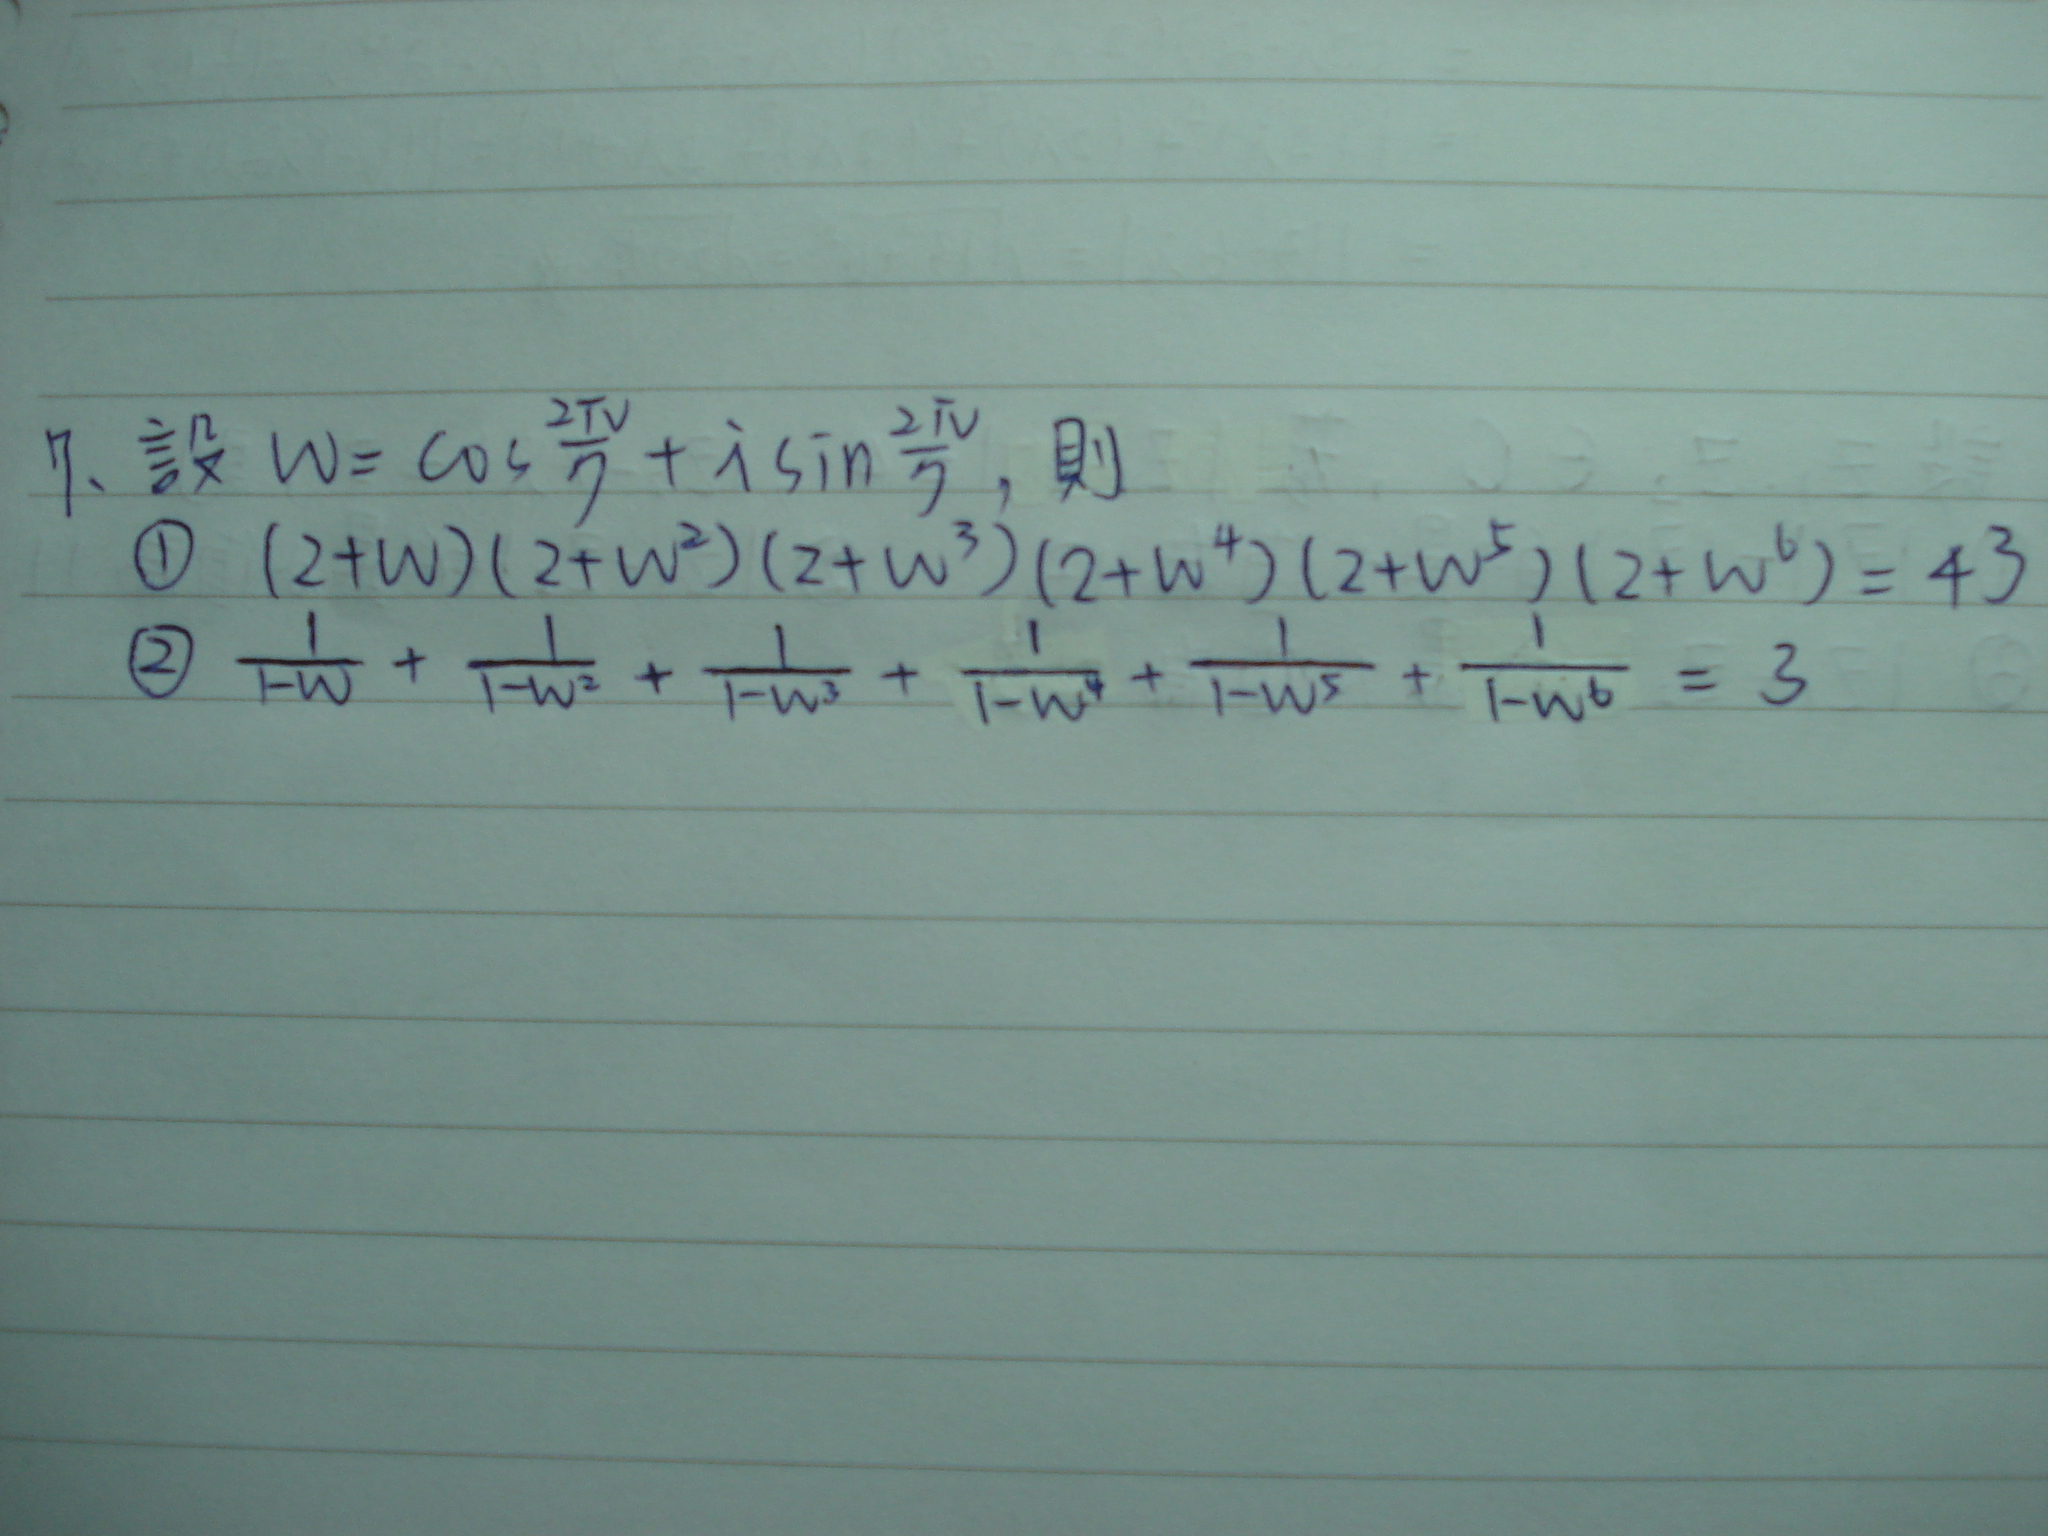 7、設 W = cos 2π/7 + i sin 2π/7，則
① (2+W)(2+W²)(2+W³)(2+W⁴)(2+W⁵)(2+W⁶) = 43
② 1/(1-W) + 1/(1-W²) + 1/(1-W³) + 1/(1-W⁴) + 1/(1-W⁵) + 1/(1-W⁶) = 3